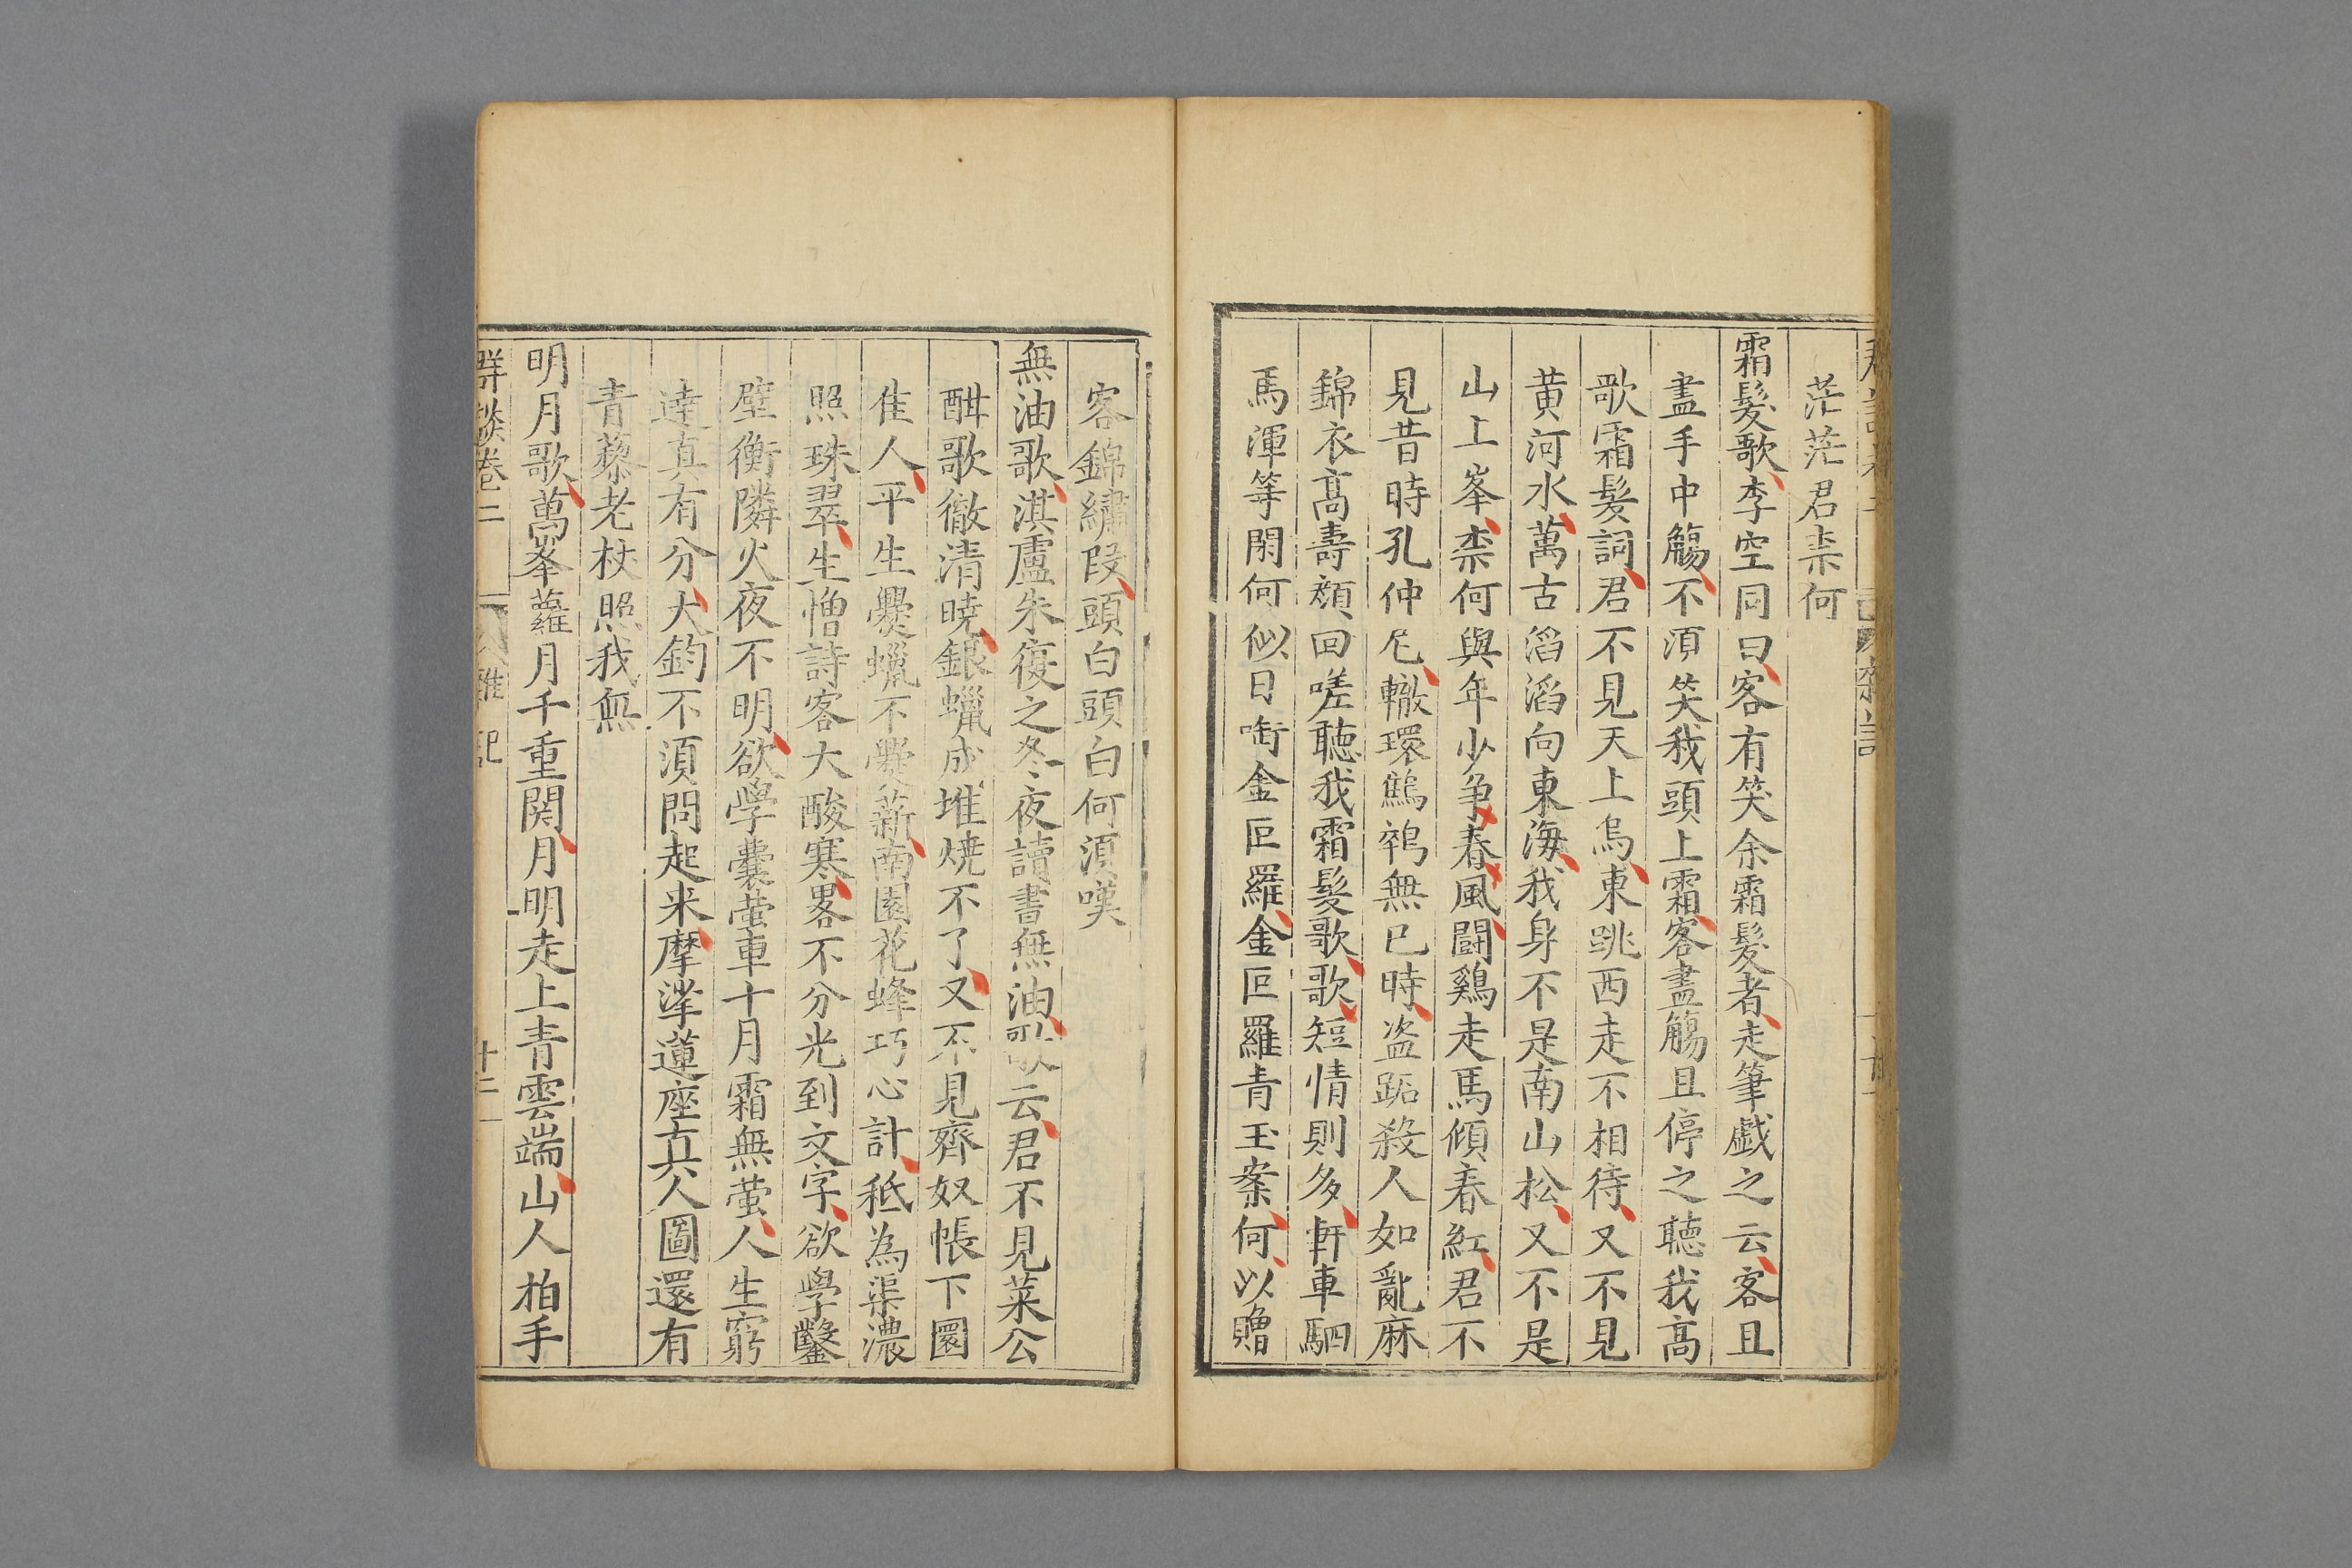 茫茫君柰何
霜髮歌李空同曰客有笑余霜髮者走筆戲之云客且
盡手中觴不須笑我頭上霜客盡觴且停之聽我高
歌霜髮詞君不見天上烏東跳西走不相待又不見
黄河水萬古滔滔向東海我身不是南山松又不是
山上峯柰何與年少争春風鬪鷄走馬傾春紅君不
見昔時孔仲尼轍環鷦鷯無已時盗跖殺人如亂麻
錦衣高壽顏回嗟聽我霜髮歌歌短情則多軒車駟
馬渾等閑何似日㗸金叵羅金叵羅青玉案何以贈
客錦繡段頭白頭白何須嘆
無油歌淇盧朱復之冬夜讀書無油歌云君不見萊公
酣歌徹清曉銀蠟成堆燒不了又不見齊奴帳下圂
佳人平生爨蠟不爨薪南園花蜂巧心計秪為渠濃
照珠翠生憎詩客大酸寒畧不分光到文字欲學鑿
壁衡隣火夜不明欲學囊螢車十月霜無螢人生窮
達真有分大鈞不須問起来摩挲蓮座真人圖還有
青藜老杖照我無
明月歌萬峯蘿月千重関月明走上青雲端山人拍手
群談卷二
雜記
十二